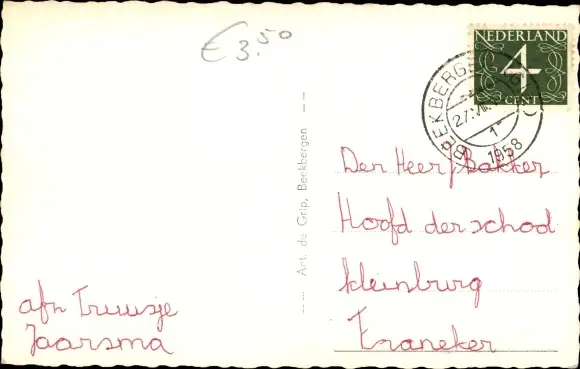 € 3.50
NEDERLAND
4
CENT
BEEKBERGEN
27.VIII
1958
Den Heer J Bakker
Hoofd der school
Kleinburg
Franeker
afn Truusje
Jaarsma
Ant. de Grip, Beekbergen